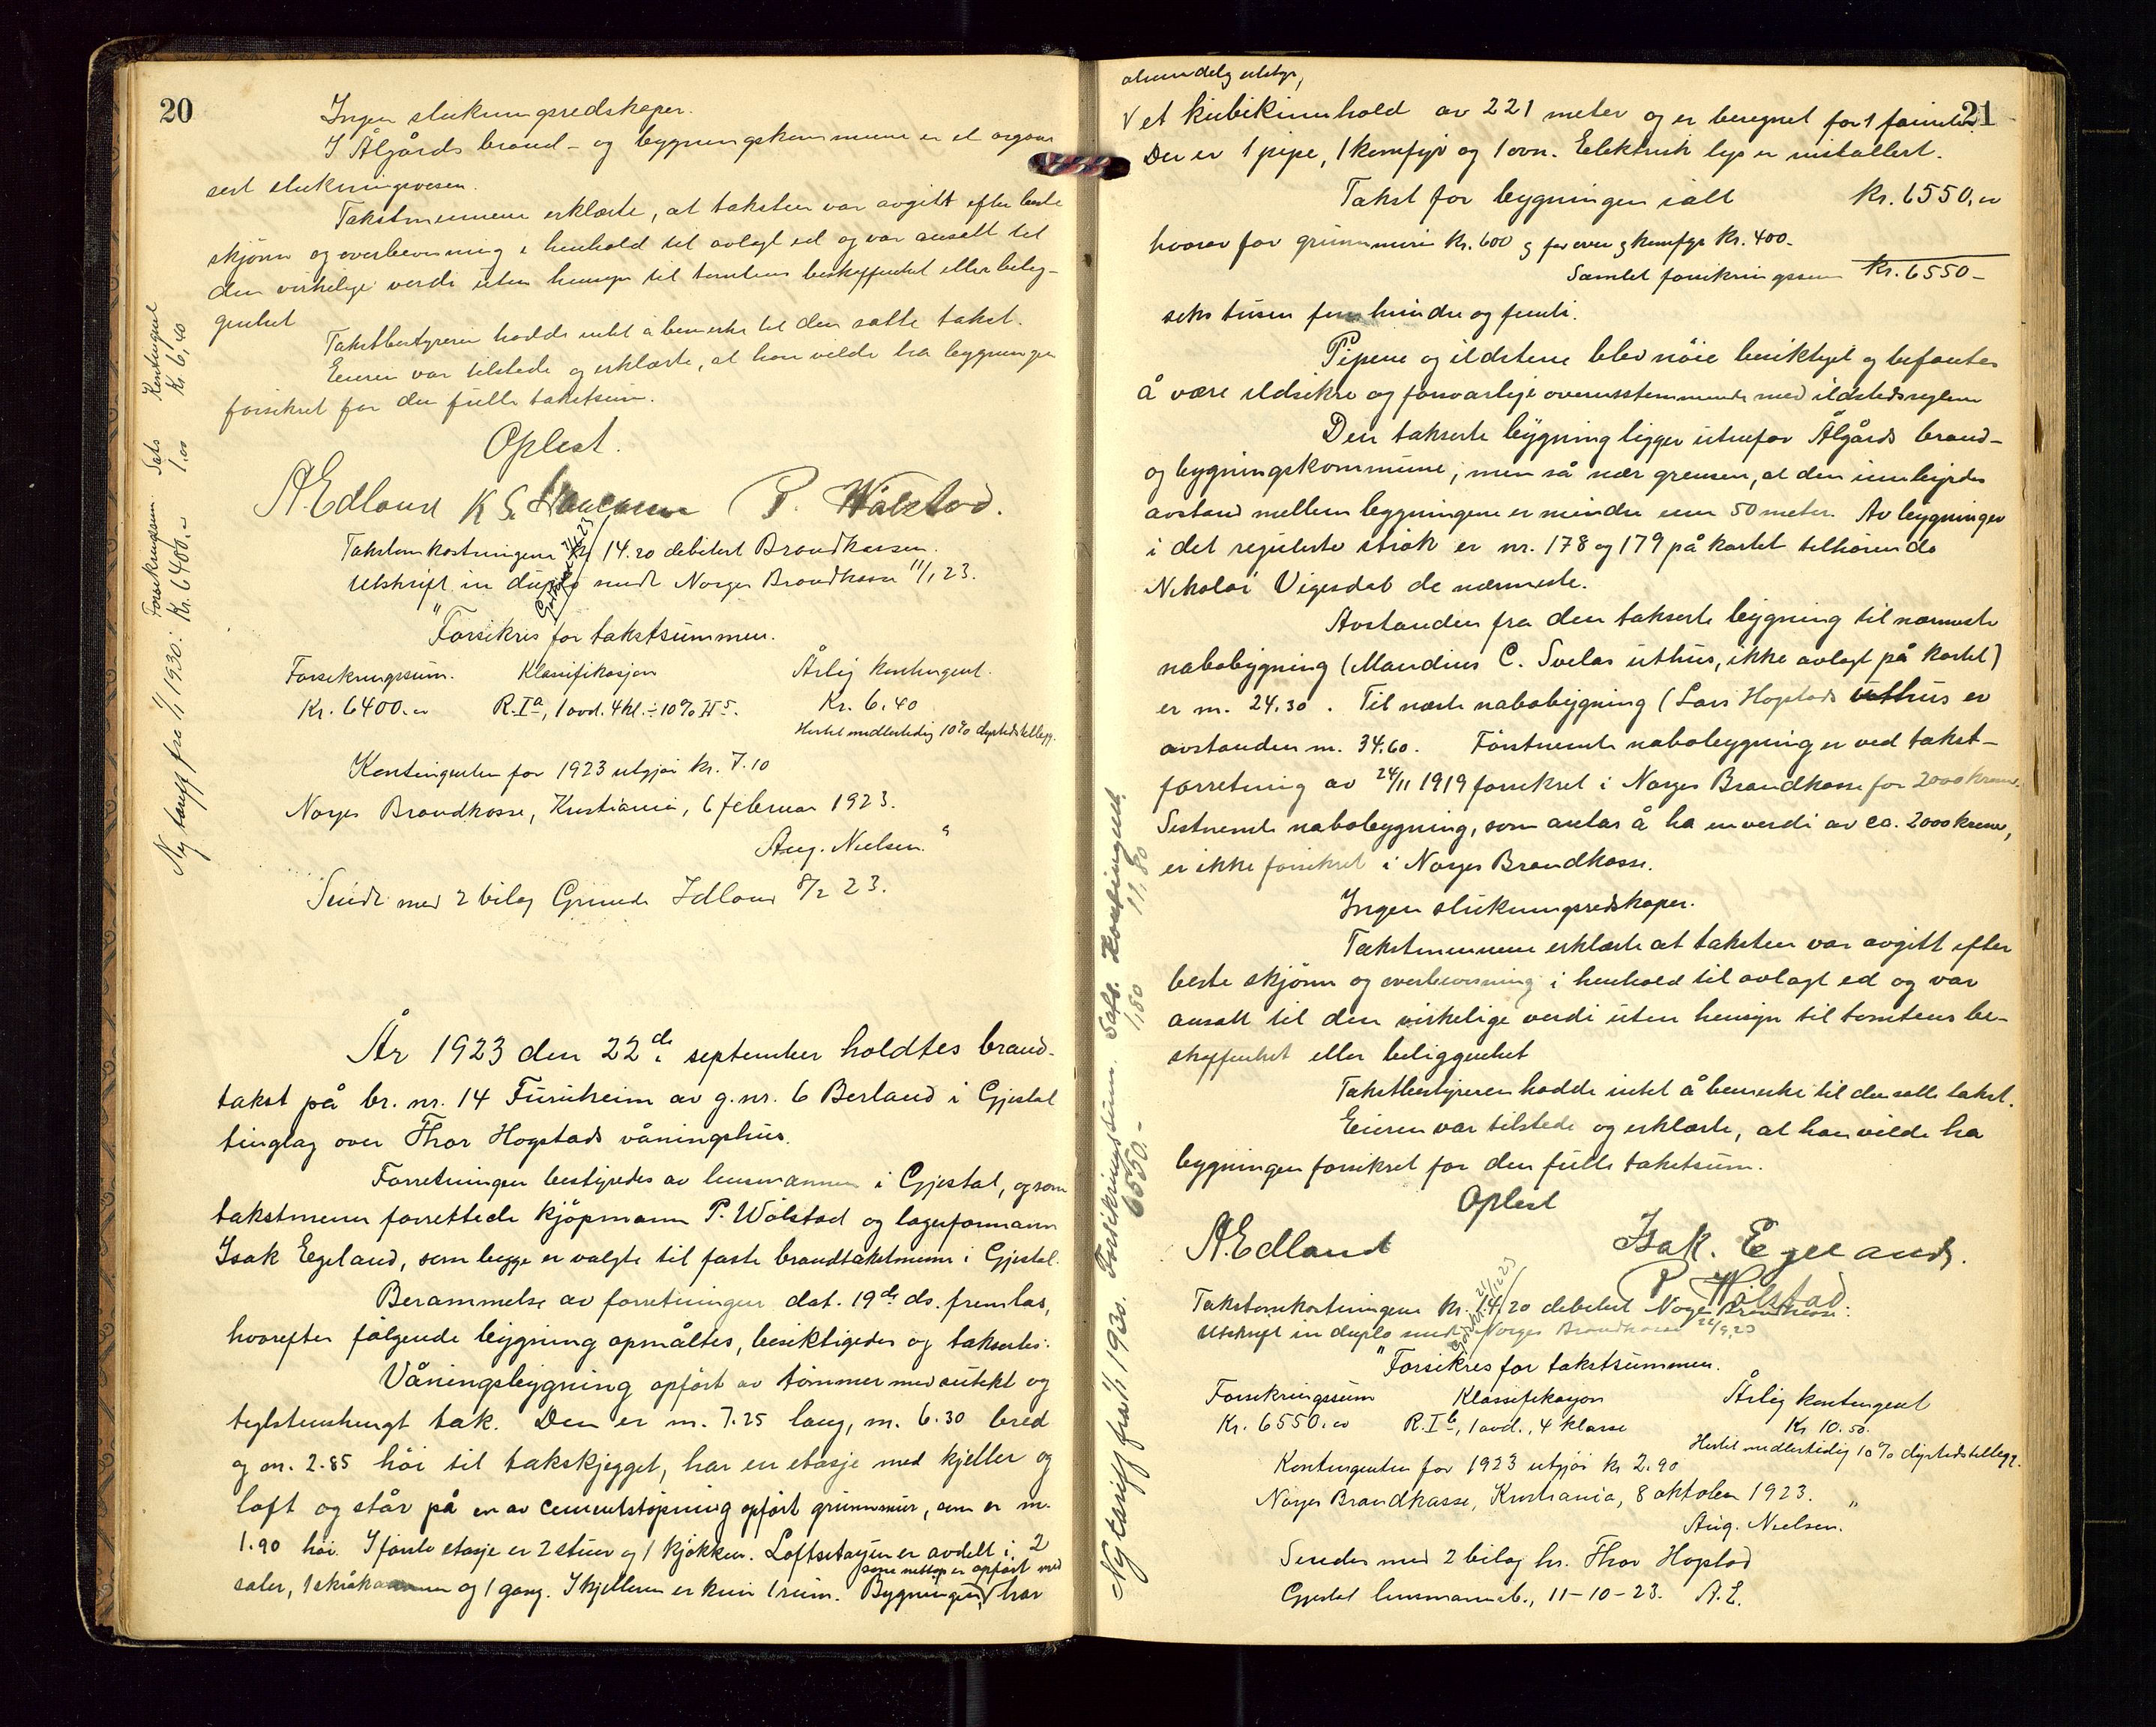 20
Ingen slukningsredskaper.
I Ålgårds brand- og bygningskommune er et organi
sert slukningsvesen.
Takstmennene erklærte, at taksten var avgitt efter beste
skjønn og overbevisning i henhold til avlagt ed og var ansatt til
den virkelige verdi uten hensyn til tomtens beskaffenhet eller belig-
genhet
Takstbestyreren hadde intet å bemerke til den satte takst.
Eieren var tilstede og erklærte, at han vilde ha bygningen
forsikret for den fulle takstsum.
Oplest.
A. Edland K. S. P. Wålstad.
Takstomkostningene kr. 14.20 debitert Brandkassen.
Utskrift in duplo sendt Norges Brandkasse 11/1 23.
"Forsikres for takstsummen.
Forsikringssum. Klassifikasjon Årlig kontingent.
Kr. 6400.00 R.Iᵃ, 1 avd. 4 kl. ÷ 10% Kr. 6.40
Hertil midlertidig 10% dyrtidstillegg.
Kontingenten for 1923 utgjør kr. 7.10
Norges Brandkasse, Kristiania, 6 februar 1923.
Aug. Nielsen."
Sendt med 2 bilag Gunder Idland 8/2 23.
Ny tariff fra 1/1 1930. Forsikringssum Kr. 6400.00 Sats 1,00 Kontingent Kr 6,40
År 1923 den 22de september holdtes brand-
takst på br. nr. 14 Furuheim av g. nr. 6 Berland i Gjestal
tinglag over Thor Hogstads våningshus.
Forretningen bestyredes av lensmannen i Gjestal, og som
takstmenn forrettede kjöpmann P. Wålstad og lagerformann
Isak Egeland, som begge er valgte til faste brandtakstmenn i Gjestal.
Berammelse av forretningen dat. 19de ds. fremlas,
hvorefter fölgende bygning opmåltes, besiktigedes og takseres:
Våningsbygning opfört av tömmer med utekt og
teglstenshengt tak. Den er m. 7.25 lang, m. 6.30 bred
og m. 2.85 höi til takskjegget, har en etasje med kjeller og
loft og står på en av cementstöpning opfört grunnmur, som er m.
1.90 höi. I förste etasje er 2 stuer og 1 kjökken. Loftsetasjen er avdelt i 2
saler, 1 skråkammer og 1 gang. I kjelleren er kun 1 rum. Bygningen √ har
som nettop er opfört med
21
almindelig utstyr,
√ et kubikinnhold av 221 meter og er beregnet for 1 familie.
Der er 1 pipe, 1 komfyr og 1 ovn. Elektrisk lys er installert.
Takst for bygningen ialt kr. 6550,00
hvorav for grunnmuren kr. 600 og for ovn og komfyr kr. 400.-
Samlet forsikringssum kr. 6550-
seks tusen fem hundre og femti.
Pipene og ildstene blev nöie besiktiget og befantes
å være ildsikre og forsvarlige overensstemmende med ildstedsreglene
Den takserte bygning ligger utenfor Ålgårds brand-
og bygningskommune, men så nær grensen, at den innbyrdes
avstand mellem bygningene er mindre enn 50 meter. Av bygninger
i det regulerte strök er nr. 178 og 179 på kartet tilhörende
Nikolai Vigesdal de nærmeste.
Avstanden fra den takserte bygning til nærmeste
nabobygning (Maudius C. Svelas uthus, ikke avlagt på kartet)
er m. 24.30. Til næste nabobygning (Lars Hogstads uthus er
avstanden m. 34.60. Förstnevnte nabobygning er ved takst-
forretning av 24/11 1919 forsikret i Norges Brandkasse for 2000 kroner.
Sistnevnte nabobygning, som antas å ha en verdi av ca. 2000 kroner,
er ikke forsikret i Norges Brandkasse.
Ingen slukningsredskaper.
Takstmennene erklærte at taksten var avgitt efter
beste skjönn og overbevisning i henhold til avlagt ed og var
ansatt til den virkelige verdi uten hensyn til tomtens be-
skaffenhet eller beliggenhet
Takstbestyreren hadde intet å bemerke til den satte takst.
Eieren var tilstede og erklærte, at han vilde ha
bygningen forsikret for den fulle takstsum.
Oplest
A. Edland Isak. Egeland.
P. Wålstad
Takstomkostningene kr. 14.20 debitert Norges Brandkasse.
Utskrift in duplo sendt Norges Brandkasse 22/9 23
"Forsikres for takstsummen.
Forsikringssum Klassifikasjon Årlig kontingent
Kr. 6550.00 R.Iᵇ, 1 avd., 4 klasse Kr 10.50.
Hertil midlertidig 10% dyrtidstillegg.
Kontingenten for 1923 utgjör kr 2.90
Norges Brandkasse, Kristiania, 8 oktober 1923.
Aug. Nielsen."
Sendes med 2 bilag hr. Thor Hogstad
Gjestal lensmannsb., 11-10-23. A.E.
Ny tariff fra 1/1 1930. Forsikringssum. 6550.- Sats. 1,80 Kontingent 11,80